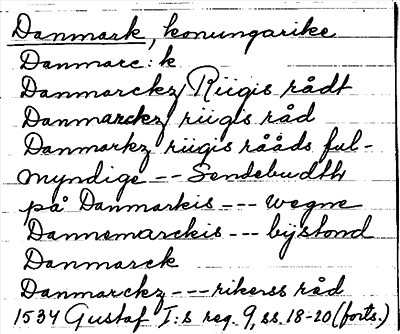 Danmark, konungarike
Danmarc:k
Danmarckz Riigis rådt
Danmarckz riigis råd
Danmarkz riigis rååds ful-
myndige -- Sendebudth
på Danmarkis --- wegne
Dannemarckis --- bijstond
Danmarck
Danmarckz --- rikerss råd
1534 Gustaf I:s reg. 9, ss. 18-20 (forts.)